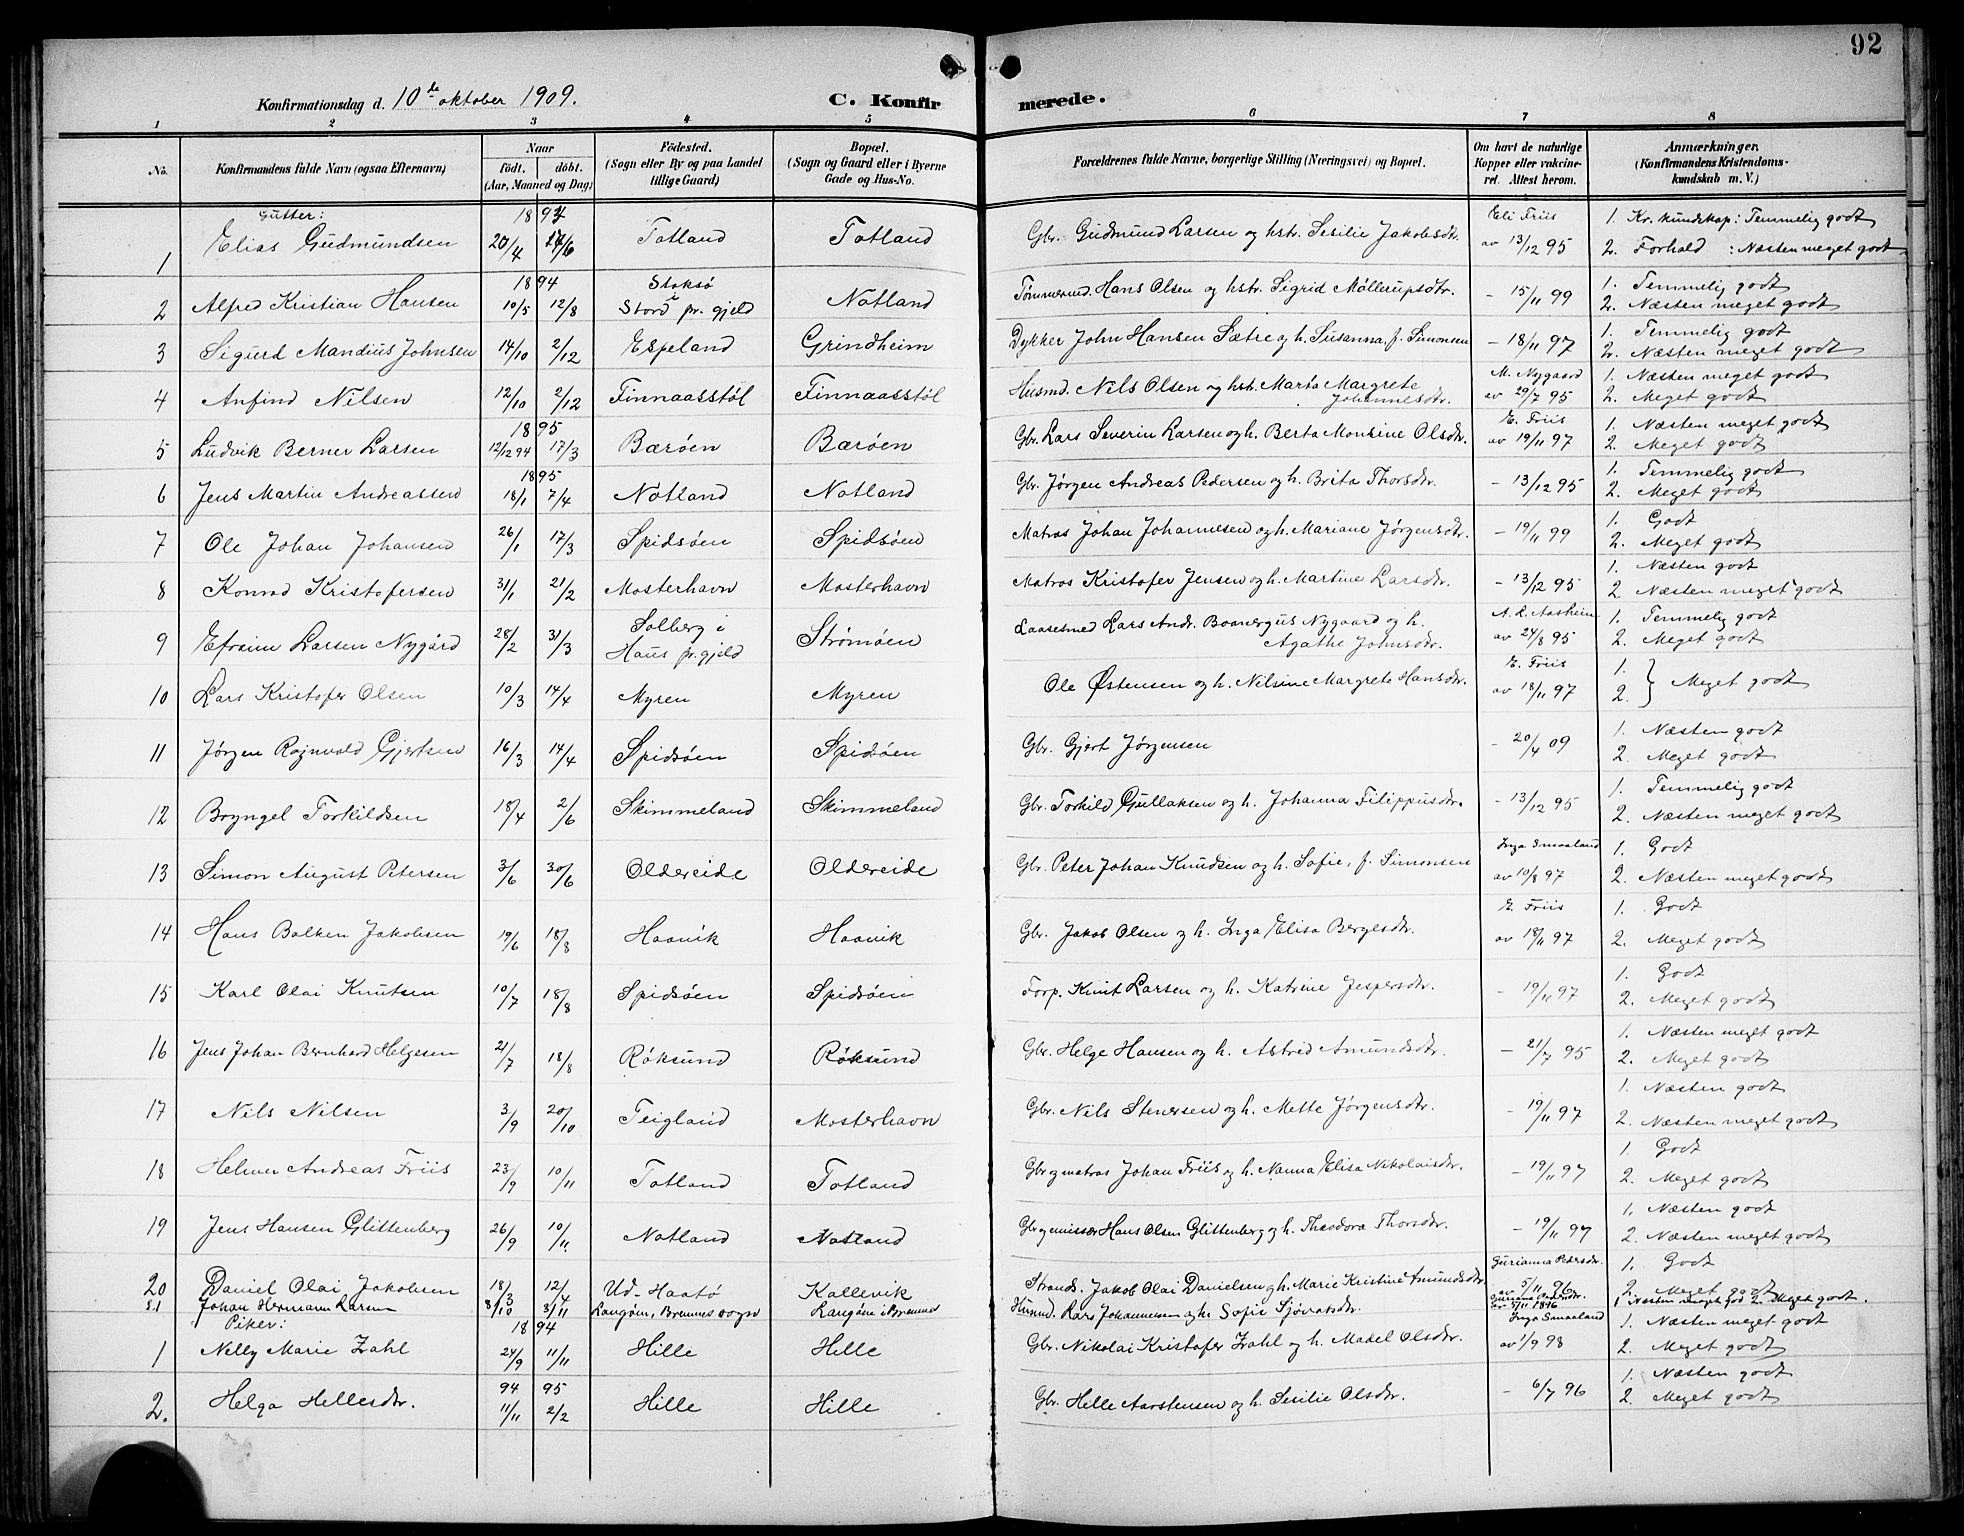 92
Konfirmationsdag d. 10de oktober 1909. C. Konfirmerede.
1 2 3 4 5 6 7 8
No. Konfirmandens fulde Navn (ogsaa Efternavn) Naar födt. döbt. (Aar, Maaned og Dag) Födested. (Sogn eller By og paa Landet tillige Gaard) Bopæl. (Sogn og Gaard eller i Byerne Gade og Hus-No. Forældrenes fulde Navne, borgerlige Stilling (Næringsvei) og Bopæl. Om havt de naturlige Kopper eller vakcineret. Attest herom. Anmærkninger. (Konfirmandens Kristendomskundskab m. V.)
Gutter: 1894
1 Elias Gudmundsen 20/4 /6 Totland Totland Gbr. Gudmund Larsen og hstr. Sesilie Jakobsdtr. Eli Friis av 13/12 95 1. Kr. kundskap: Temmelig godt 2. Forhold: Næsten meget godt
1894
2 Alfred Kristian Hansen 10/5 12/8 Stoksö i Stord pr.gjeld Notland Tømmermd. Hans Olsen og hstr. Sigrid Møllerupsdtr. – 15/11 99 1. Temmelig godt 2. Næsten meget godt
3 Sigurd Mandius Johnsen 14/10 2/12 Espeland Grindheim Dykker John Hansen Sætre og h. Susanna, f. Simonsen – 18/11 97 1. Temmelig godt 2. Næsten meget godt
4 Anfind Nilsen 12/10 2/12 Finnaasstöl Finnaasstöl Husmd. Nils Olsen og hstr. Marta Margrete Johannesdtr. M. Nygaard av 29/7 95 1. Næsten meget godt 2. Meget godt
1895
5 Ludvik Berner Larsen 12/12 94 17/3 Bæröen Bæröen Gbr. Lars Severin Larsen og h. Berta Monsine Olsdtr. E. Friis av 19/11 97 1. Næsten meget godt 2. Meget godt
1895
6 Jens Martin Andreassen 18/1 7/4 Notland Notland Gbr. Jørgen Andreas Pedersen og h. Brita Thorsdtr. – 13/12 95 1. Temmelig godt 2. Meget godt
7 Ole Johan Johansen 26/1 17/3 Spidsöen Spidsöen Matros Johan Johannesen og h. Mariane Jørgensdtr. – 19/11 99 1. Godt 2. Meget godt
8 Konrad Kristofersen 31/1 21/2 Mosterhavn Mosterhavn Matros Kristofer Jensen og h. Martine Larsdtr. – 13/12 95 1. Næsten godt 2. Næsten meget godt
9 Efraim Larsen Nygård 28/2 31/3 Solberg i Haus pr.gjeld Strømöen Laasesmed Lars Andr. Boanergus Nygaard og h. Agathe Johnsdtr. A. L. Aasheim av 24/8 95 1. Temmelig godt 2. Meget godt
10 Lars Kristofer Olsen 10/3 14/4 Myren Myren Ole Østensen og h. Nilsine Margrete Hansdtr. E. Friis av 18/11 97 1. 2. } Meget godt
11 Jørgen Ragnvald Gjertsen 16/3 14/4 Spidsöen Spidsöen Gbr. Gjert Jørgensen – 20/4 09 1. Næsten godt 2. Meget godt
12 Bryngel Torkildsen 18/4 2/6 Skimmeland Skimmeland Gbr. Torkild Gullaksen og h. Johanna Filippusdtr. – 13/12 95 1. Temmelig godt 2. Næsten meget godt
13 Simon August Petersen 3/6 30/6 Oldereide Oldereide Gbr. Peter Johan Knudsen og h. Sofie, f. Simonsen Inga Smaaland av 10/8 97 1. Godt 2. Næsten meget godt
14 Hans Balken Jakobsen 19/6 18/8 Haavik Haavik Gbr. Jakob Olsen og h. Inga Elisa Bergesdtr. E. Friis av 18/11 97 1. Godt 2. Meget godt
15 Karl Olai Knutsen 10/7 18/8 Spidsöen Spidsöen Forp. Knut Larsen og h. Katrine Jespersdtr. – 19/11 97 1. Godt 2. Meget godt
16 Jens Johan Bernhard Helgesen 21/7 18/8 Röksund Röksund Gbr. Helge Hansen og h. Astrid Amundsdtr. – 21/7 95 1. Næsten meget godt 2. Meget godt
17 Nils Nilsen 3/9 20/10 Teigland Mosterhavn Gbr. Nils Stenersen og h. Mette Jørgensdtr. – 19/11 97 1. Næsten godt 2. Næsten meget godt
18 Helmer Andreas Friis 23/9 10/11 Totland Totland Gbr og matros Johan Friis og h. Nanna Elisa Nikolaisdtr. – 19/11 97 1. Godt 2. Meget godt
19 Jens Hansen Glittenberg 26/9 10/11 Notland Notland Gbr og emissær Hans Olsen Glittenberg og h. Theodora Thorsdtr. – 19/11 97 1. Næsten godt 2. Næsten meget godt
20 Daniel Olai Jakobsen 18/3 12/4 Ud-Haatö Kallevik Strands. Jakob Olai Danielsen og h. Marie Kristine Amundsdtr. Gurianna Pedersdtr. av 5/11 96 1. Godt 2. Meget godt
21 Johan Hermann Larsen 8/10 3/11 Langöen, Bremnes sogn Langöen i Bremnes Husmd. Lars Johannessen og h. Sofie Sjovatsdtr. av 5/11 1896 1. Næsten meget god 2. Meget godt.
Piker: 1894
1 Nelly Marie Zahl 24/9 11/11 Hille Hille Gbr. Nikolai Kristofer Zahl og h. Madel Olsdtr. Inga Smaaland av 1/9 98 1. Næsten meget godt 2. Meget godt
2. Helga Hellesdtr. 94 11/11 95 2/2 Hille Hille Gbr. Helle Aarstensen og h. Sesilie Olsdtr. – 6/7 96 1. Næsten godt 2. Meget godt